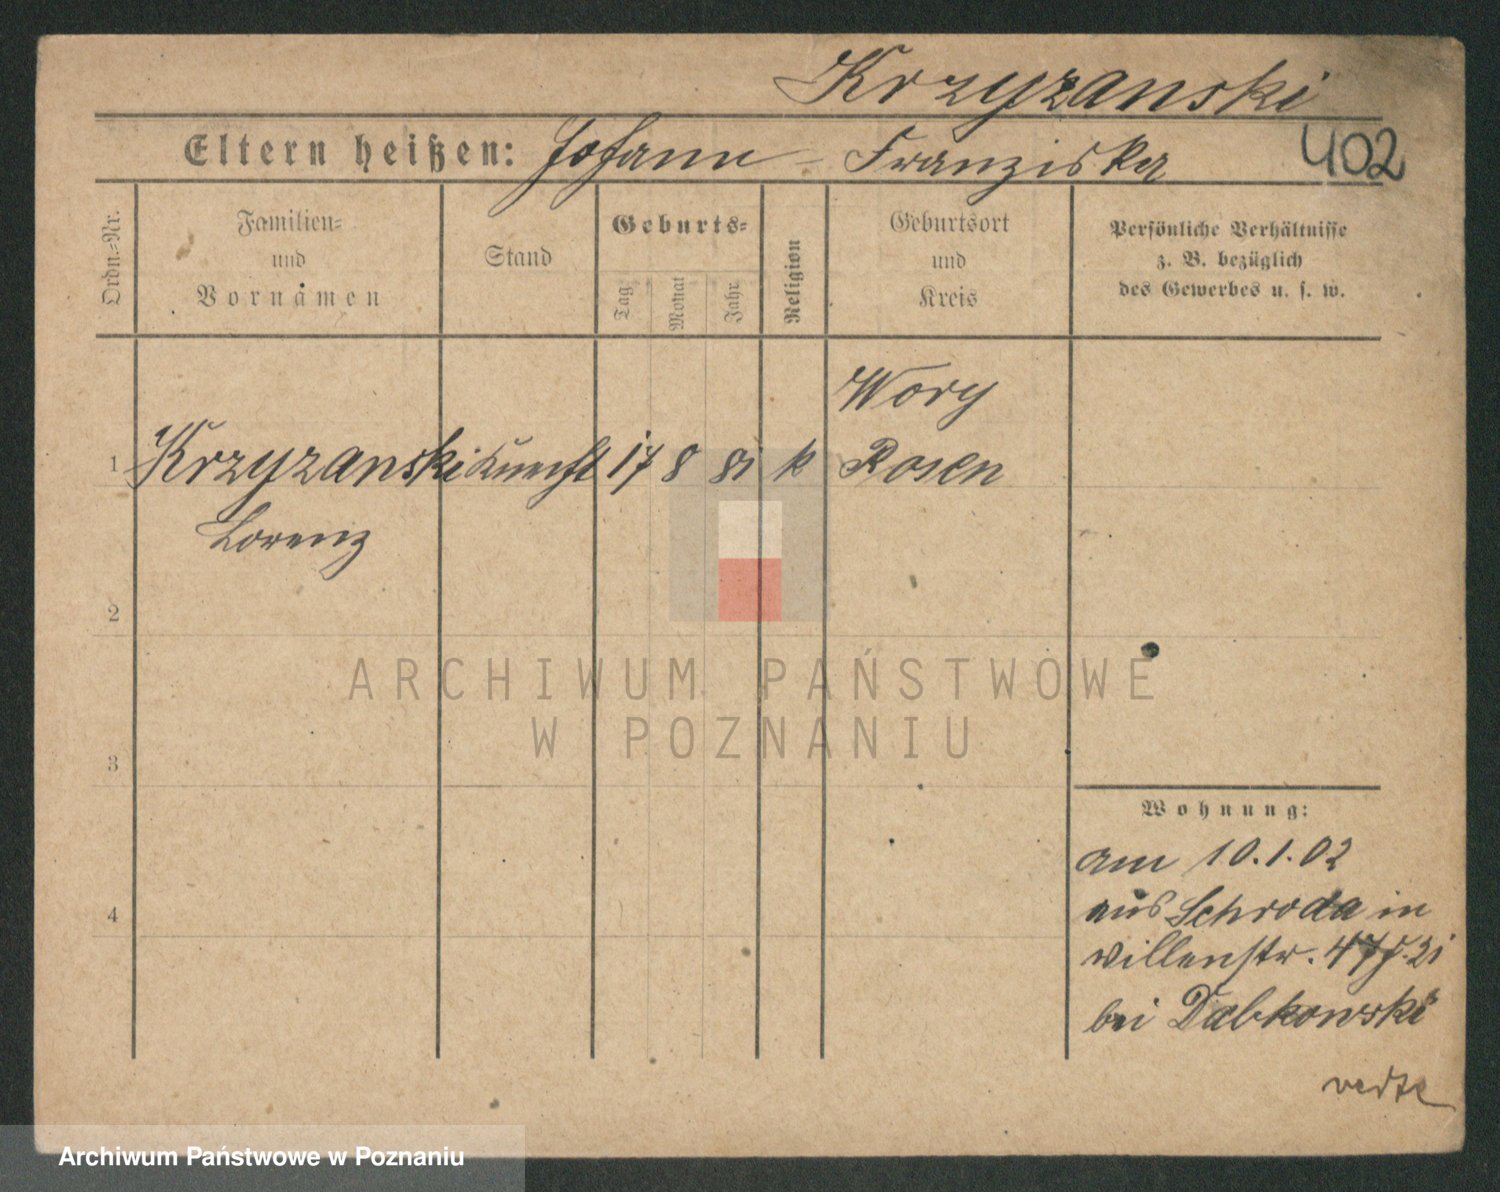 Krzyzanski
Eltern heißen: Johann - Franziska
402
Ordn.-Nr.
Familien-
und
Vornamen
Stand
Geburts-
Tag
Monat
Jahr
Religion
Geburtsort
und
Kreis
Persönliche Verhältnisse
z. B. bezüglich
des Gewerbes u. s. w.
Wory
1 Krzyzanski Knecht 17 8 81 k Posen
Lorenz
2
ARCHIWUM PAŃSTWOWE
W POZNANIU
3
Wohnung:
am 10.1.02
aus Schroda in
Villenstr.
bei Dabkowski
4
verte
Archiwum Państwowe w Poznaniu